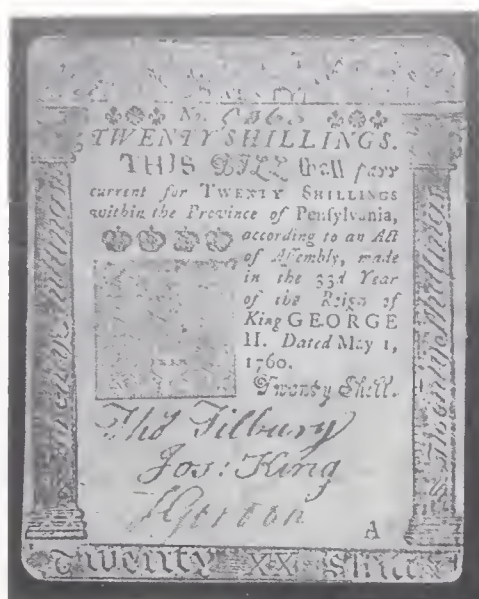 No. 
TWENTY SHILLINGS.
THIS BILL shall pass
current for TWENTY SHILLINGS
within the Province of Pensylvania,
according to an Act
of Assembly, made
in the 33d Year
of the Reign of
King GEORGE
II. Dated May 1,
1760.
Twenty Shill.
Tho Tilbury
Jos: King
Gordon
A
Twenty XX Shill
Twenty Shillings
Twenty Shillings